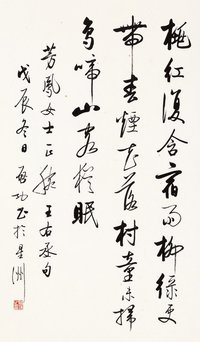 桃红復含宿雨柳绿更
带春煙花落村童未掃
鸟啼山客猶眠
芳凤女士正腕 王右丞句
戊辰冬日 启功书於星洲